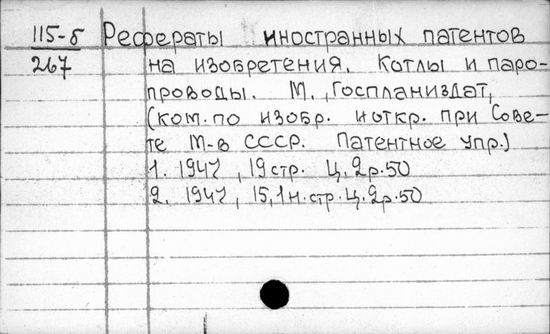 115-б Рефераты иностранных патентов
267 на изобретения. Котлы и паро-
проводы. М., Госпланиздат,
(Ком. по изобр. и откр. при Сове-
те М-в СССР. Патентное упр.)
1. 1947, 19 стр. Ц. 2р.50
2. 1947, 15,1 н.стр. Ц. 2р.50